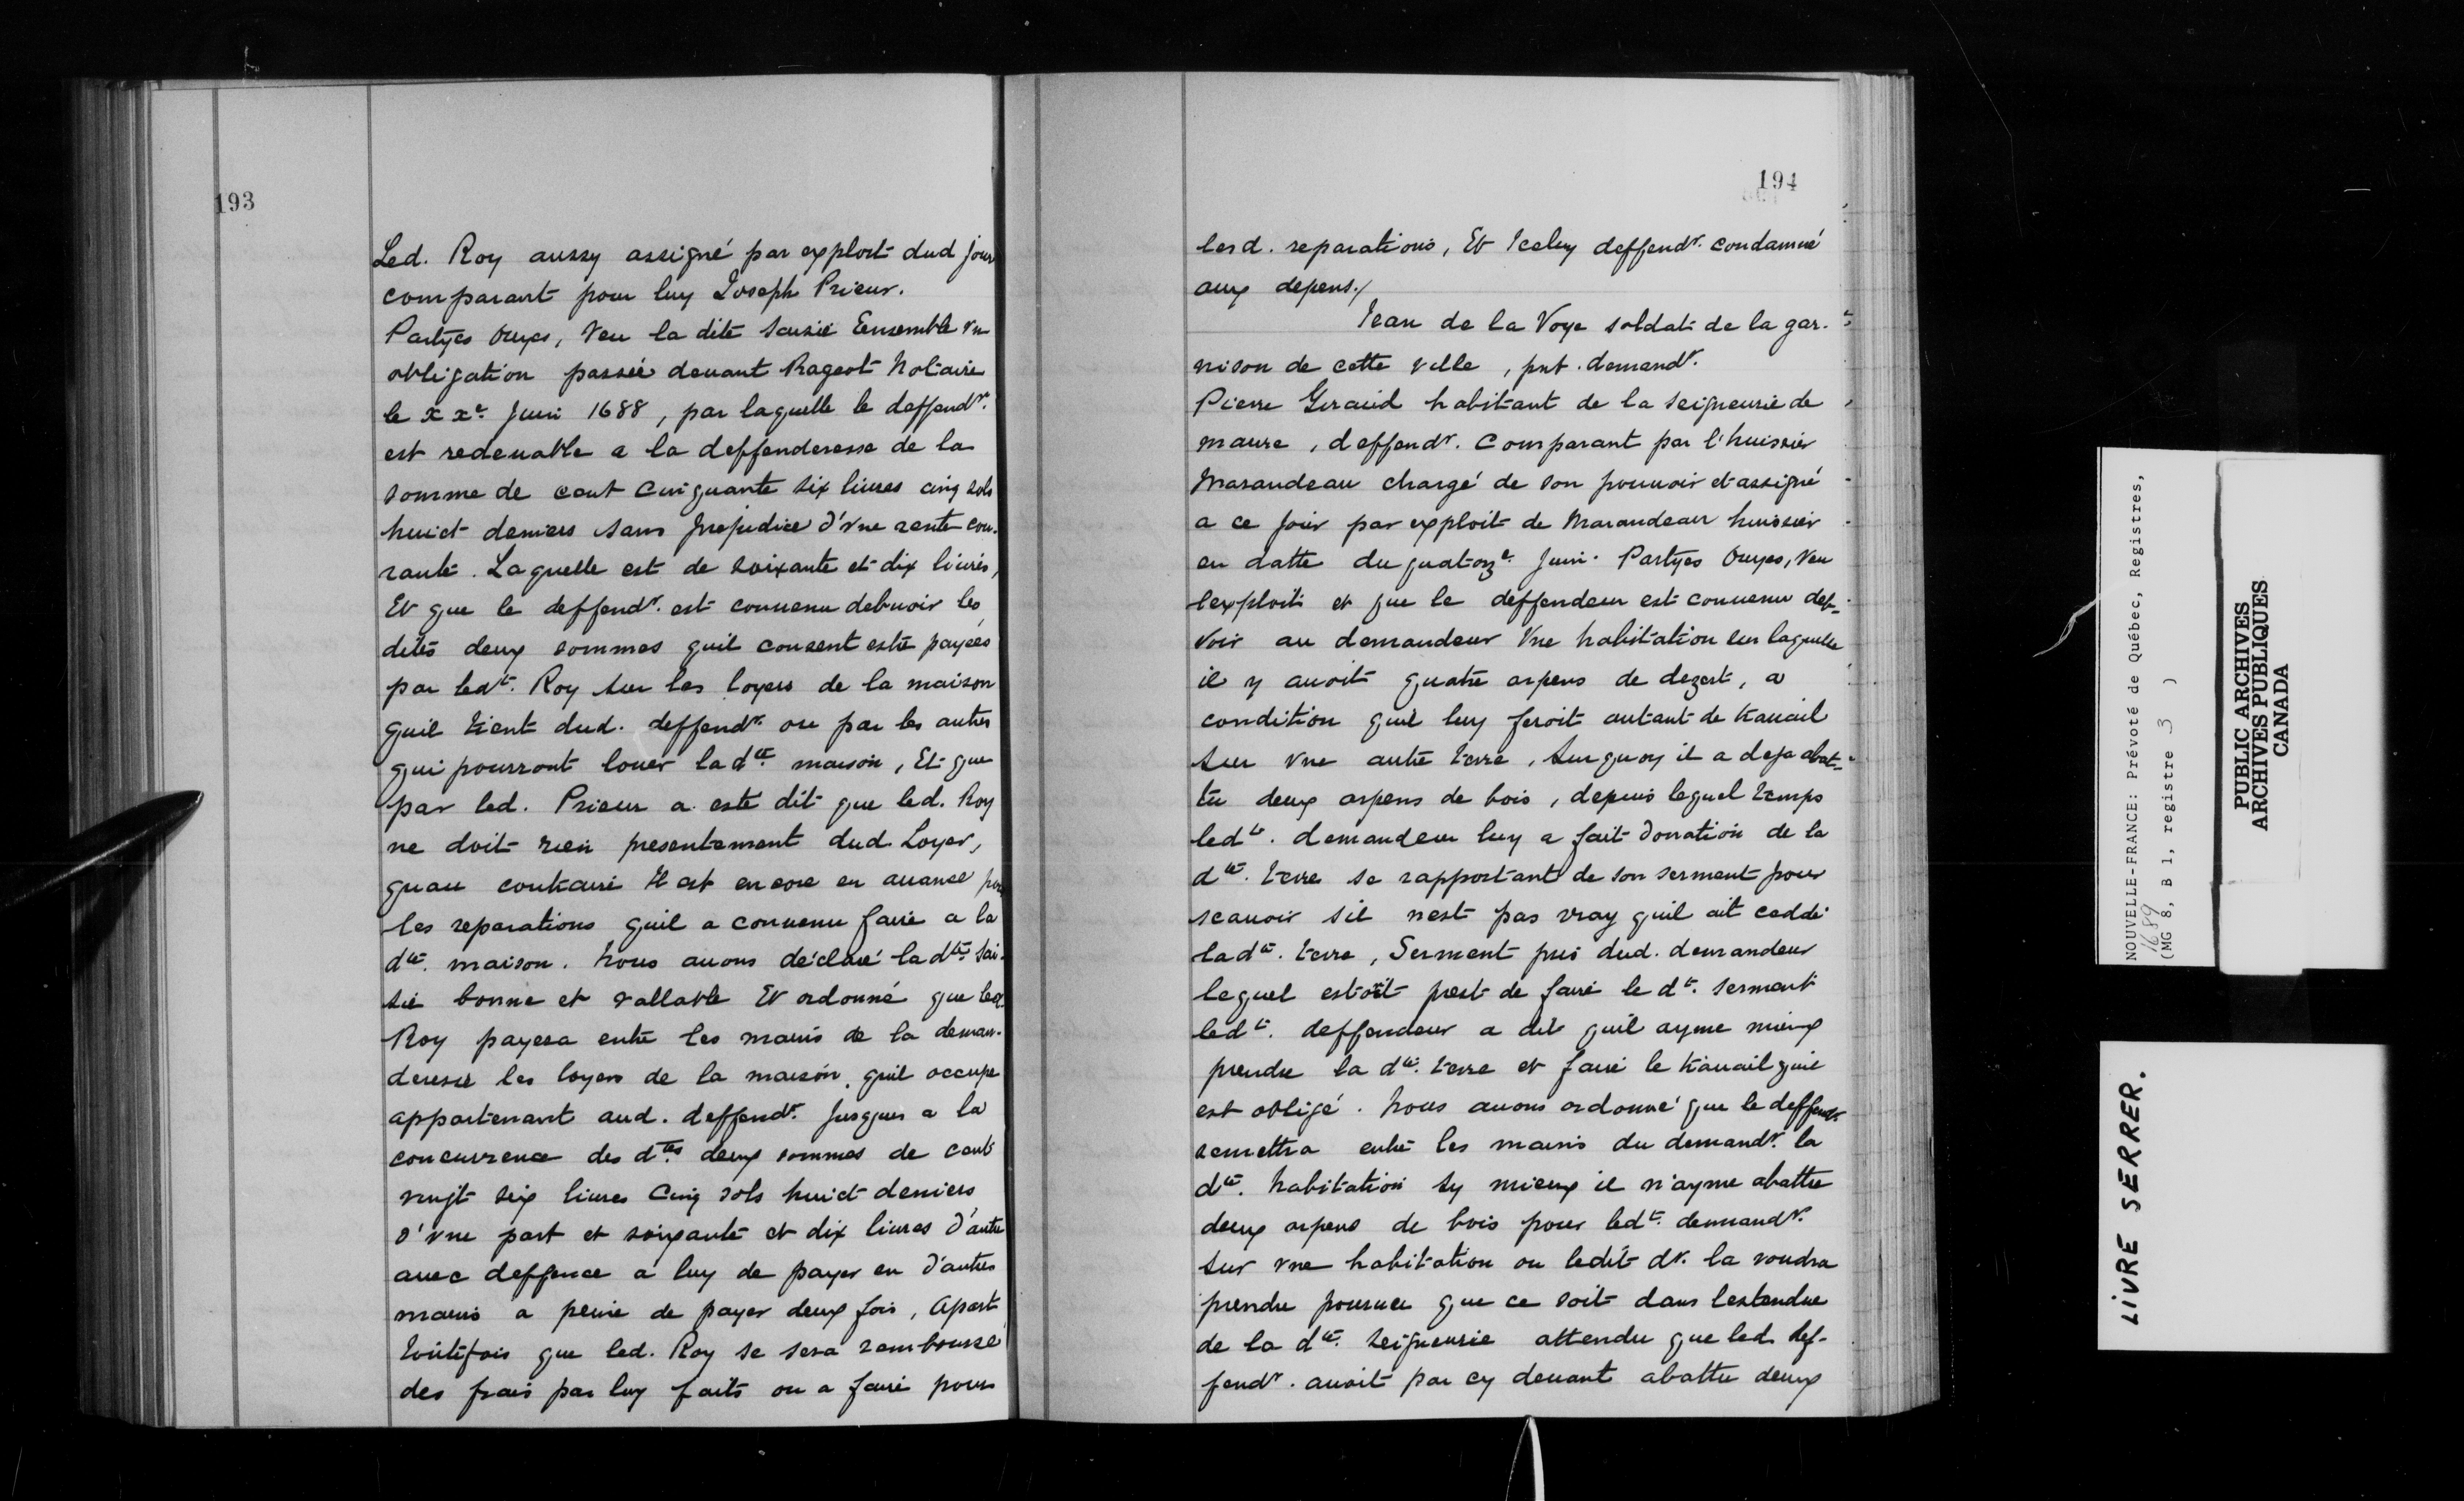 193
Led. Roy aussy assigné par exploit dud jour
comparant pour luy Joseph Prieur.
Partyes ouyes, Veu la dite saisie Ensemble vn
obligation passée deuant Rageot Notaire
le xxe. Juin 1688, par laquelle le deffendr.
est redeuable a la deffenderesse de la
somme de cent cinquante six liures cinq sols
huict deniers sans prejudice d'vne rente cou-
rante. Laquelle est de soixante et dix liures,
Et que le deffendr. est conuenu debuoir les
dites deux sommes quil consent estre payées
par ledt. Roy sur les loyers de la maison
quil tient dud. deffendr. ou par les autres
qui pourront louer la dte. maison, Et que
par led. Prieur a esté dit que led. Roy
ne doit rien presentement dud. Loyer,
quau contraire Il est encore en auance pour
les reparations quil a conuenu faire a la
dte. maison. Nous auons déclaré la dte. sai-
sie bonne et vallable Et ordonné que led.
Roy payera entre les mains de la deman-
deresse les loyers de la maison, quil occupe
appartenant aud. deffendr. Jusques a la
concurrence des dtes. deux sommes de cent
vingt six liures Cinq sols huict deniers
d'vne part et soixante et dix liures d'autre
auec deffence a luy de payer en d'autres
mains a peine de payer deux fois, Apart
toutefois que led. Roy se sera remboursé
des frais par luy faits ou a faire pour
194
lesd. reparations, Et Iceluy deffendr. condamné
aux depens./
Jean de la Voye soldat de la gar-
nison de cette ville, pnt. demandr.
Pierre Geraud habitant de la seigneurie de
maure, deffendr. Comparant par l'huissier
Marandeau chargé de son pouuoir et assigné
a ce Jour par exploit de Marandeau huissier
en datte du quatorze. Juin. Partyes Ouyes, Veu
lexploit et que le deffendeur est conuenu deb-
voir au demandeur Vne habitation sur laquelle
il y auoit quatre arpens de dezert, a
condition quil luy feroit autant de trauail
sur vne autre terre, surquoy il a deja abat-
tu deux arpens de bois, depuis lequel temps
ledt. demandeur luy a fait donation de la
dte. terre se rapportant de son serment pour
scauoir sil nest pas vray quil ait ceddé
la dte. terre, Serment pris dud. demandeur
lequel estoit prest de faire le dt. serment
ledt. deffendeur a dit quil ayme mieux
prendre la dte. terre et faire le trauail quil
est obligé. Nous auons ordonné que le deffendr.
remettra entre les mains du demandr. la
dte. habitation sy mieux il n'ayme abattre
deux arpens de bois pour ledt. demandr.
sur vne habitation ou ledit dr. la voudra
prendre pourueu que ce soit dans lestendue
de la dte. seigneurie attendu que led. def-
fendr. auoit par cy deuant abattu deux
NOUVELLE-FRANCE: Prévoté de Québec, Registres,
1689
(MG 8, B 1, registre 3 )
PUBLIC ARCHIVES
ARCHIVES PUBLIQUES
CANADA
LIVRE SERRER.